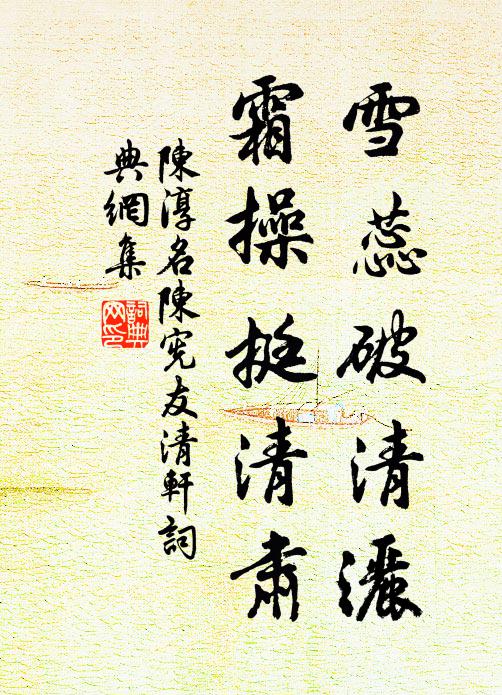 雪蕊破清灑
霜操挺清肅
陳淳名陳宪友清軒詞
典網集
詞典
网印